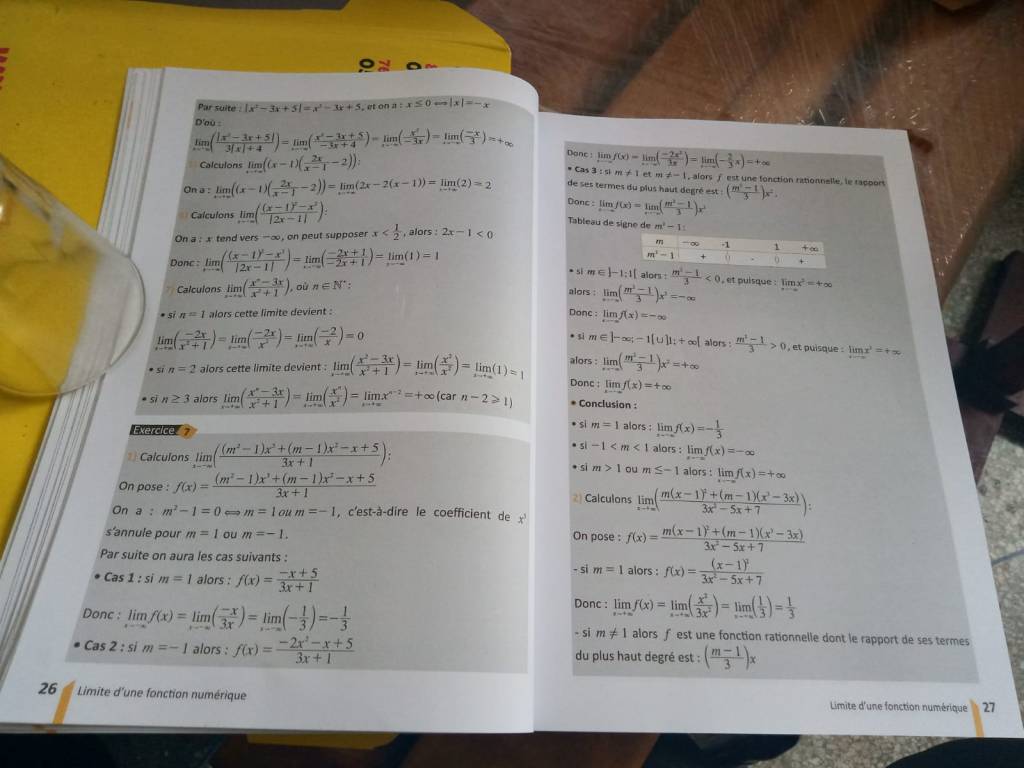 Par suite : |x² − 3x + 5| = x² − 3x + 5, et on a : x ≤ 0 ⟺ |x| = −x
D'où :
lim(x→−∞) (|x² − 3x + 5| / (3|x| + 4)) = lim(x→−∞) ((x² − 3x + 5) / (−3x + 4)) = lim(x→−∞) (x² / −3x) = lim(x→−∞) (−x/3) = +∞
Calculons lim(x→−∞) ((x − 1)(2x/(x − 1) − 2)) :
On a : lim(x→−∞) ((x − 1)(2x/(x − 1) − 2)) = lim(x→−∞) (2x − 2(x − 1)) = lim(x→−∞) (2) = 2
Calculons lim(x→−∞) (((x − 1)² − x²) / |2x − 1|) :
On a : x tend vers −∞, on peut supposer x < 1/2, alors : 2x − 1 < 0
Donc : lim(x→−∞) (((x − 1)² − x²) / |2x − 1|) = lim(x→−∞) ((−2x + 1) / (−2x + 1)) = lim(x→−∞) (1) = 1
7) Calculons lim(x→+∞) ((xⁿ − 3x) / (x² + 1)), où n ∈ ℕ* :
• si n = 1 alors cette limite devient :
lim(x→+∞) (−2x / (x² + 1)) = lim(x→+∞) (−2x / x²) = lim(x→+∞) (−2 / x) = 0
• si n = 2 alors cette limite devient : lim(x→+∞) ((x² − 3x) / (x² + 1)) = lim(x→+∞) (x² / x²) = lim(x→+∞) (1) = 1
• si n ≥ 3 alors lim(x→+∞) ((xⁿ − 3x) / (x² + 1)) = lim(x→+∞) (xⁿ / x²) = lim(x→+∞) xⁿ⁻² = +∞ (car n − 2 ⩾ 1)
Exercice 7
1) Calculons lim(x→−∞) (((m² − 1)x³ + (m − 1)x² − x + 5) / (3x + 1)) :
On pose : f(x) = ((m² − 1)x³ + (m − 1)x² − x + 5) / (3x + 1)
On a : m² − 1 = 0 ⟺ m = 1 ou m = −1, c'est-à-dire le coefficient de x³
s'annule pour m = 1 ou m = −1.
Par suite on aura les cas suivants :
• Cas 1 : si m = 1 alors : f(x) = (−x + 5) / (3x + 1)
Donc : lim(x→−∞) f(x) = lim(x→−∞) (−x / 3x) = lim(x→−∞) (−1/3) = −1/3
• Cas 2 : si m = −1 alors : f(x) = (−2x² − x + 5) / (3x + 1)
26 Limite d'une fonction numérique
Donc : lim(x→−∞) f(x) = lim(x→−∞) (−2x² / 3x) = lim(x→−∞) (−2/3 x) = +∞
• Cas 3 : si m ≠ 1 et m ≠ −1, alors f est une fonction rationnelle, le rapport
de ses termes du plus haut degré est : ((m² − 1)/3)x².
Donc : lim(x→−∞) f(x) = lim(x→−∞) ((m² − 1)/3)x²
Tableau de signe de m² − 1 :
m −∞ -1 1 +∞
m² − 1 + 0 - 0 +
• si m ∈ ]−1;1[ alors : (m² − 1)/3 < 0, et puisque : lim(x→−∞) x² = +∞
alors : lim(x→−∞) ((m² − 1)/3)x² = −∞
Donc : lim(x→−∞) f(x) = −∞
• si m ∈ ]−∞; −1[ ∪ ]1; +∞[ alors : (m² − 1)/3 > 0, et puisque : lim(x→−∞) x² = +∞
alors : lim(x→−∞) ((m² − 1)/3)x² = +∞
Donc : lim(x→−∞) f(x) = +∞
• Conclusion :
• si m = 1 alors : lim(x→−∞) f(x) = −1/3
• si −1 < m < 1 alors : lim(x→−∞) f(x) = −∞
• si m > 1 ou m ≤ −1 alors : lim(x→−∞) f(x) = +∞
2) Calculons lim(x→+∞) ((m(x − 1)² + (m − 1)(x³ − 3x)) / (3x² − 5x + 7)) :
On pose : f(x) = (m(x − 1)² + (m − 1)(x³ − 3x)) / (3x² − 5x + 7)
- si m = 1 alors : f(x) = (x − 1)² / (3x² − 5x + 7)
Donc : lim(x→+∞) f(x) = lim(x→+∞) (x² / 3x²) = lim(x→+∞) (1/3) = 1/3
- si m ≠ 1 alors f est une fonction rationnelle dont le rapport de ses termes
du plus haut degré est : ((m − 1)/3)x
Limite d'une fonction numérique 27